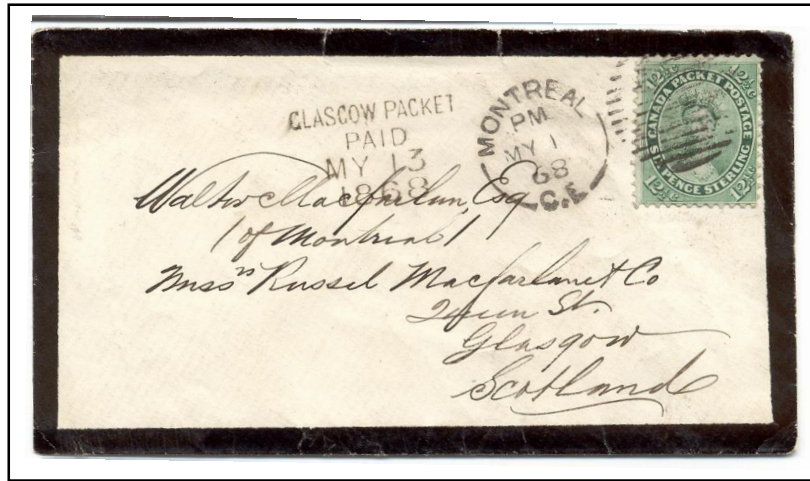 GLASGOW PACKET
PAID
MY 13
1868
MONTREAL
PM
MY 1
68
C.E
12½c 12½c
CANADA PACKET POSTAGE
SIX PENCE STERLING
12½c 12½c
Walter Macfarlan, Esq
/of Montreal/
Messrs Russel Macfarlane & Co
Queen St.
Glasgow
Scotland